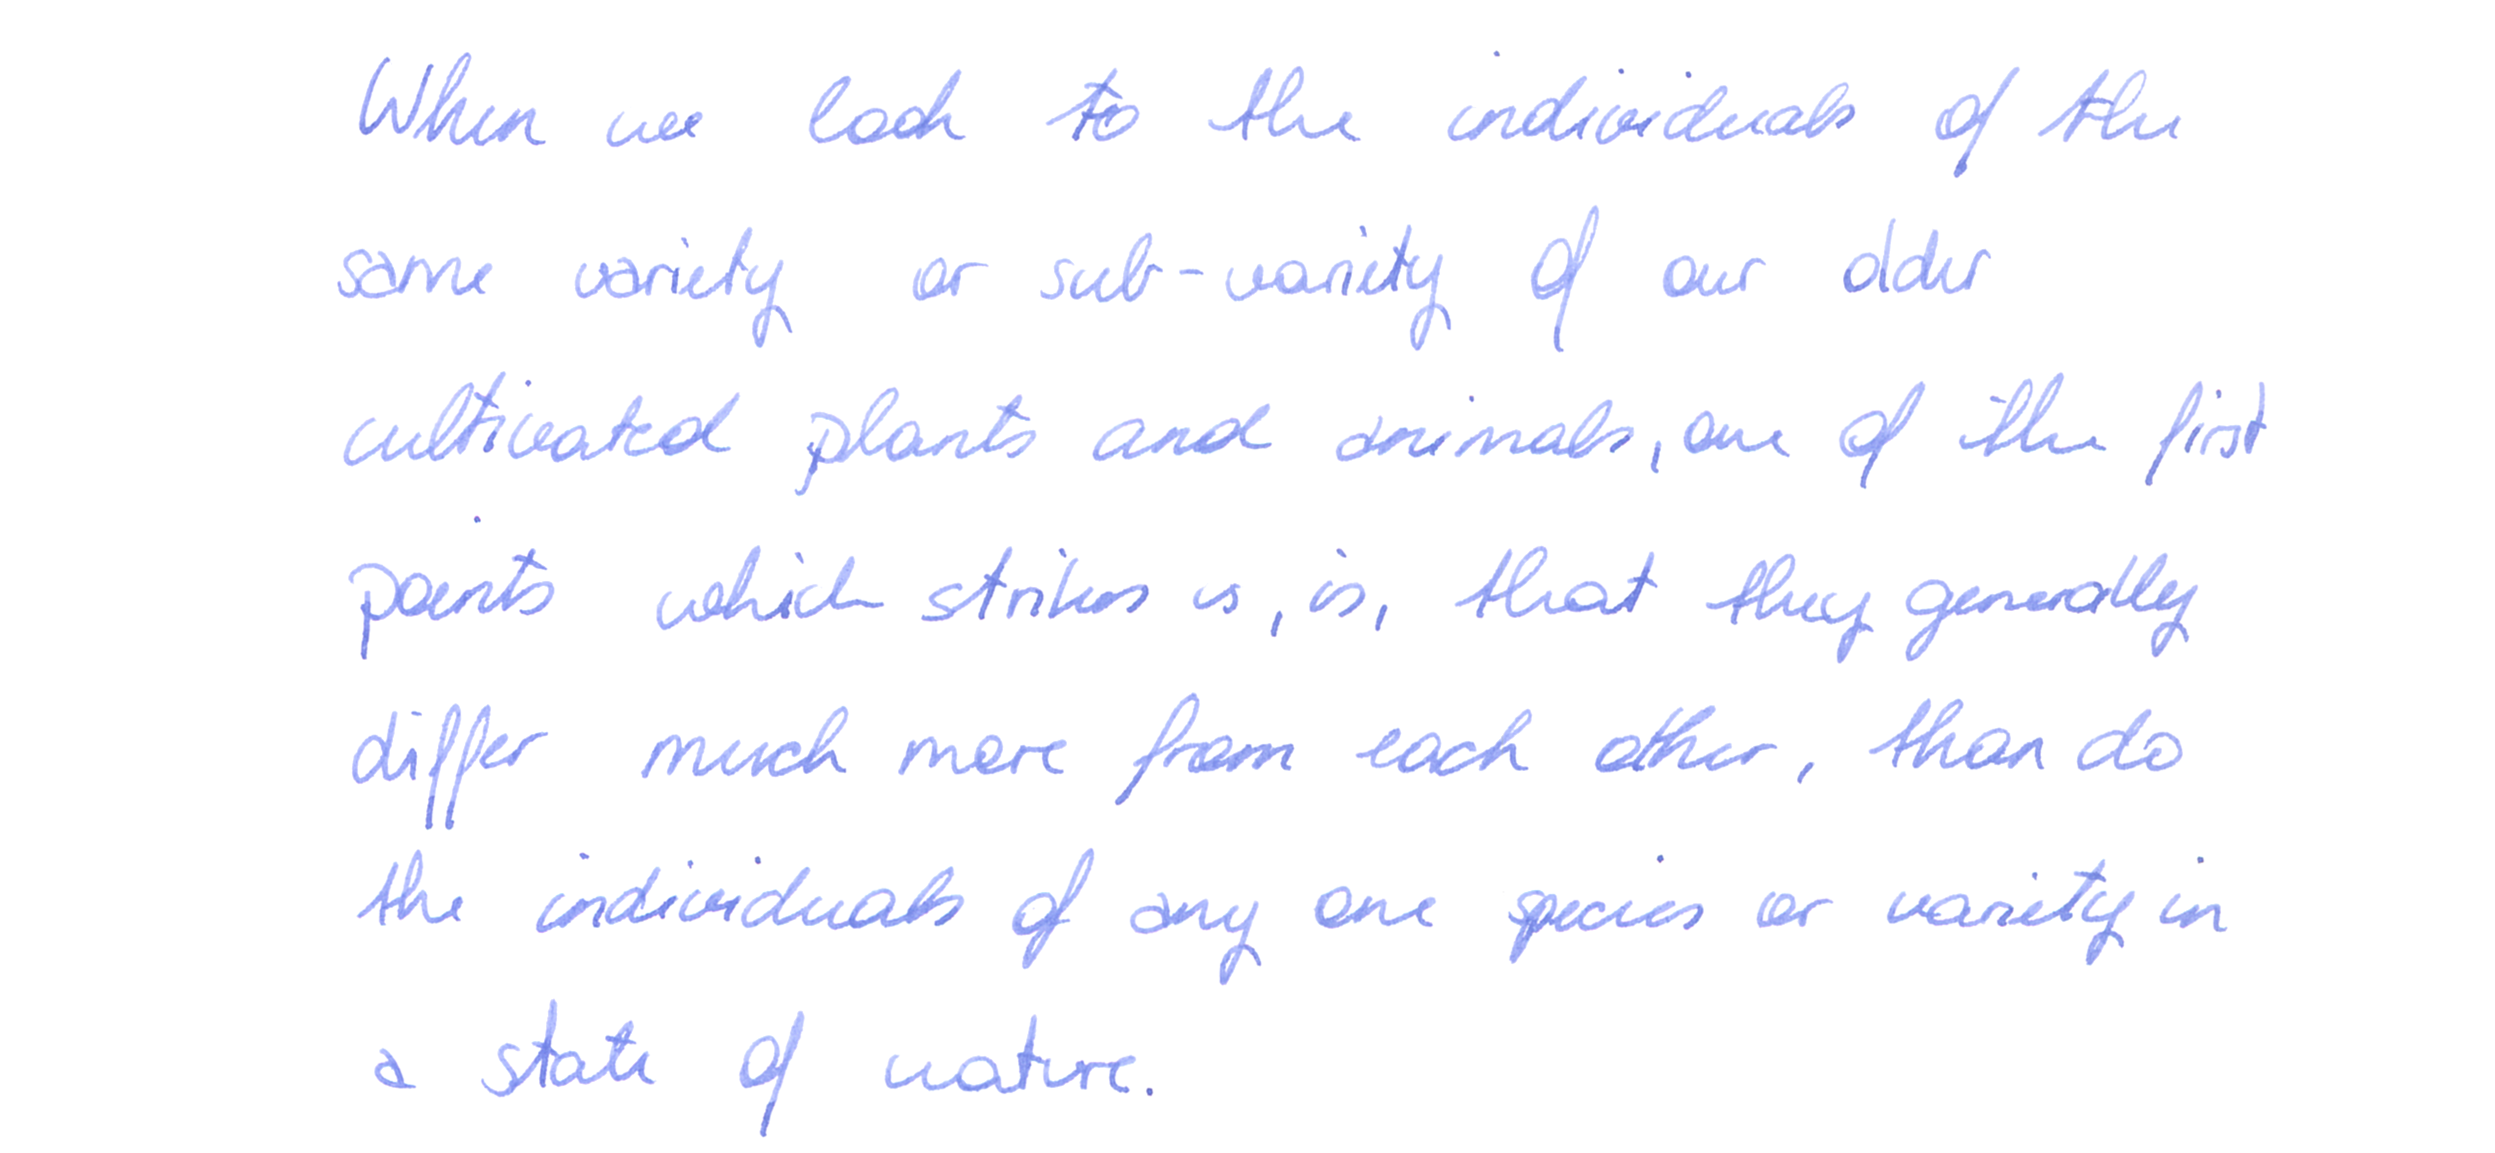 When we look to the individuals of the
same variety or sub-variety of our older
cultivated plants and animals, one of the first
points which strikes us, is, that they generally
differ much more from each other, than do
the individuals of any one species or variety in
a state of nature.